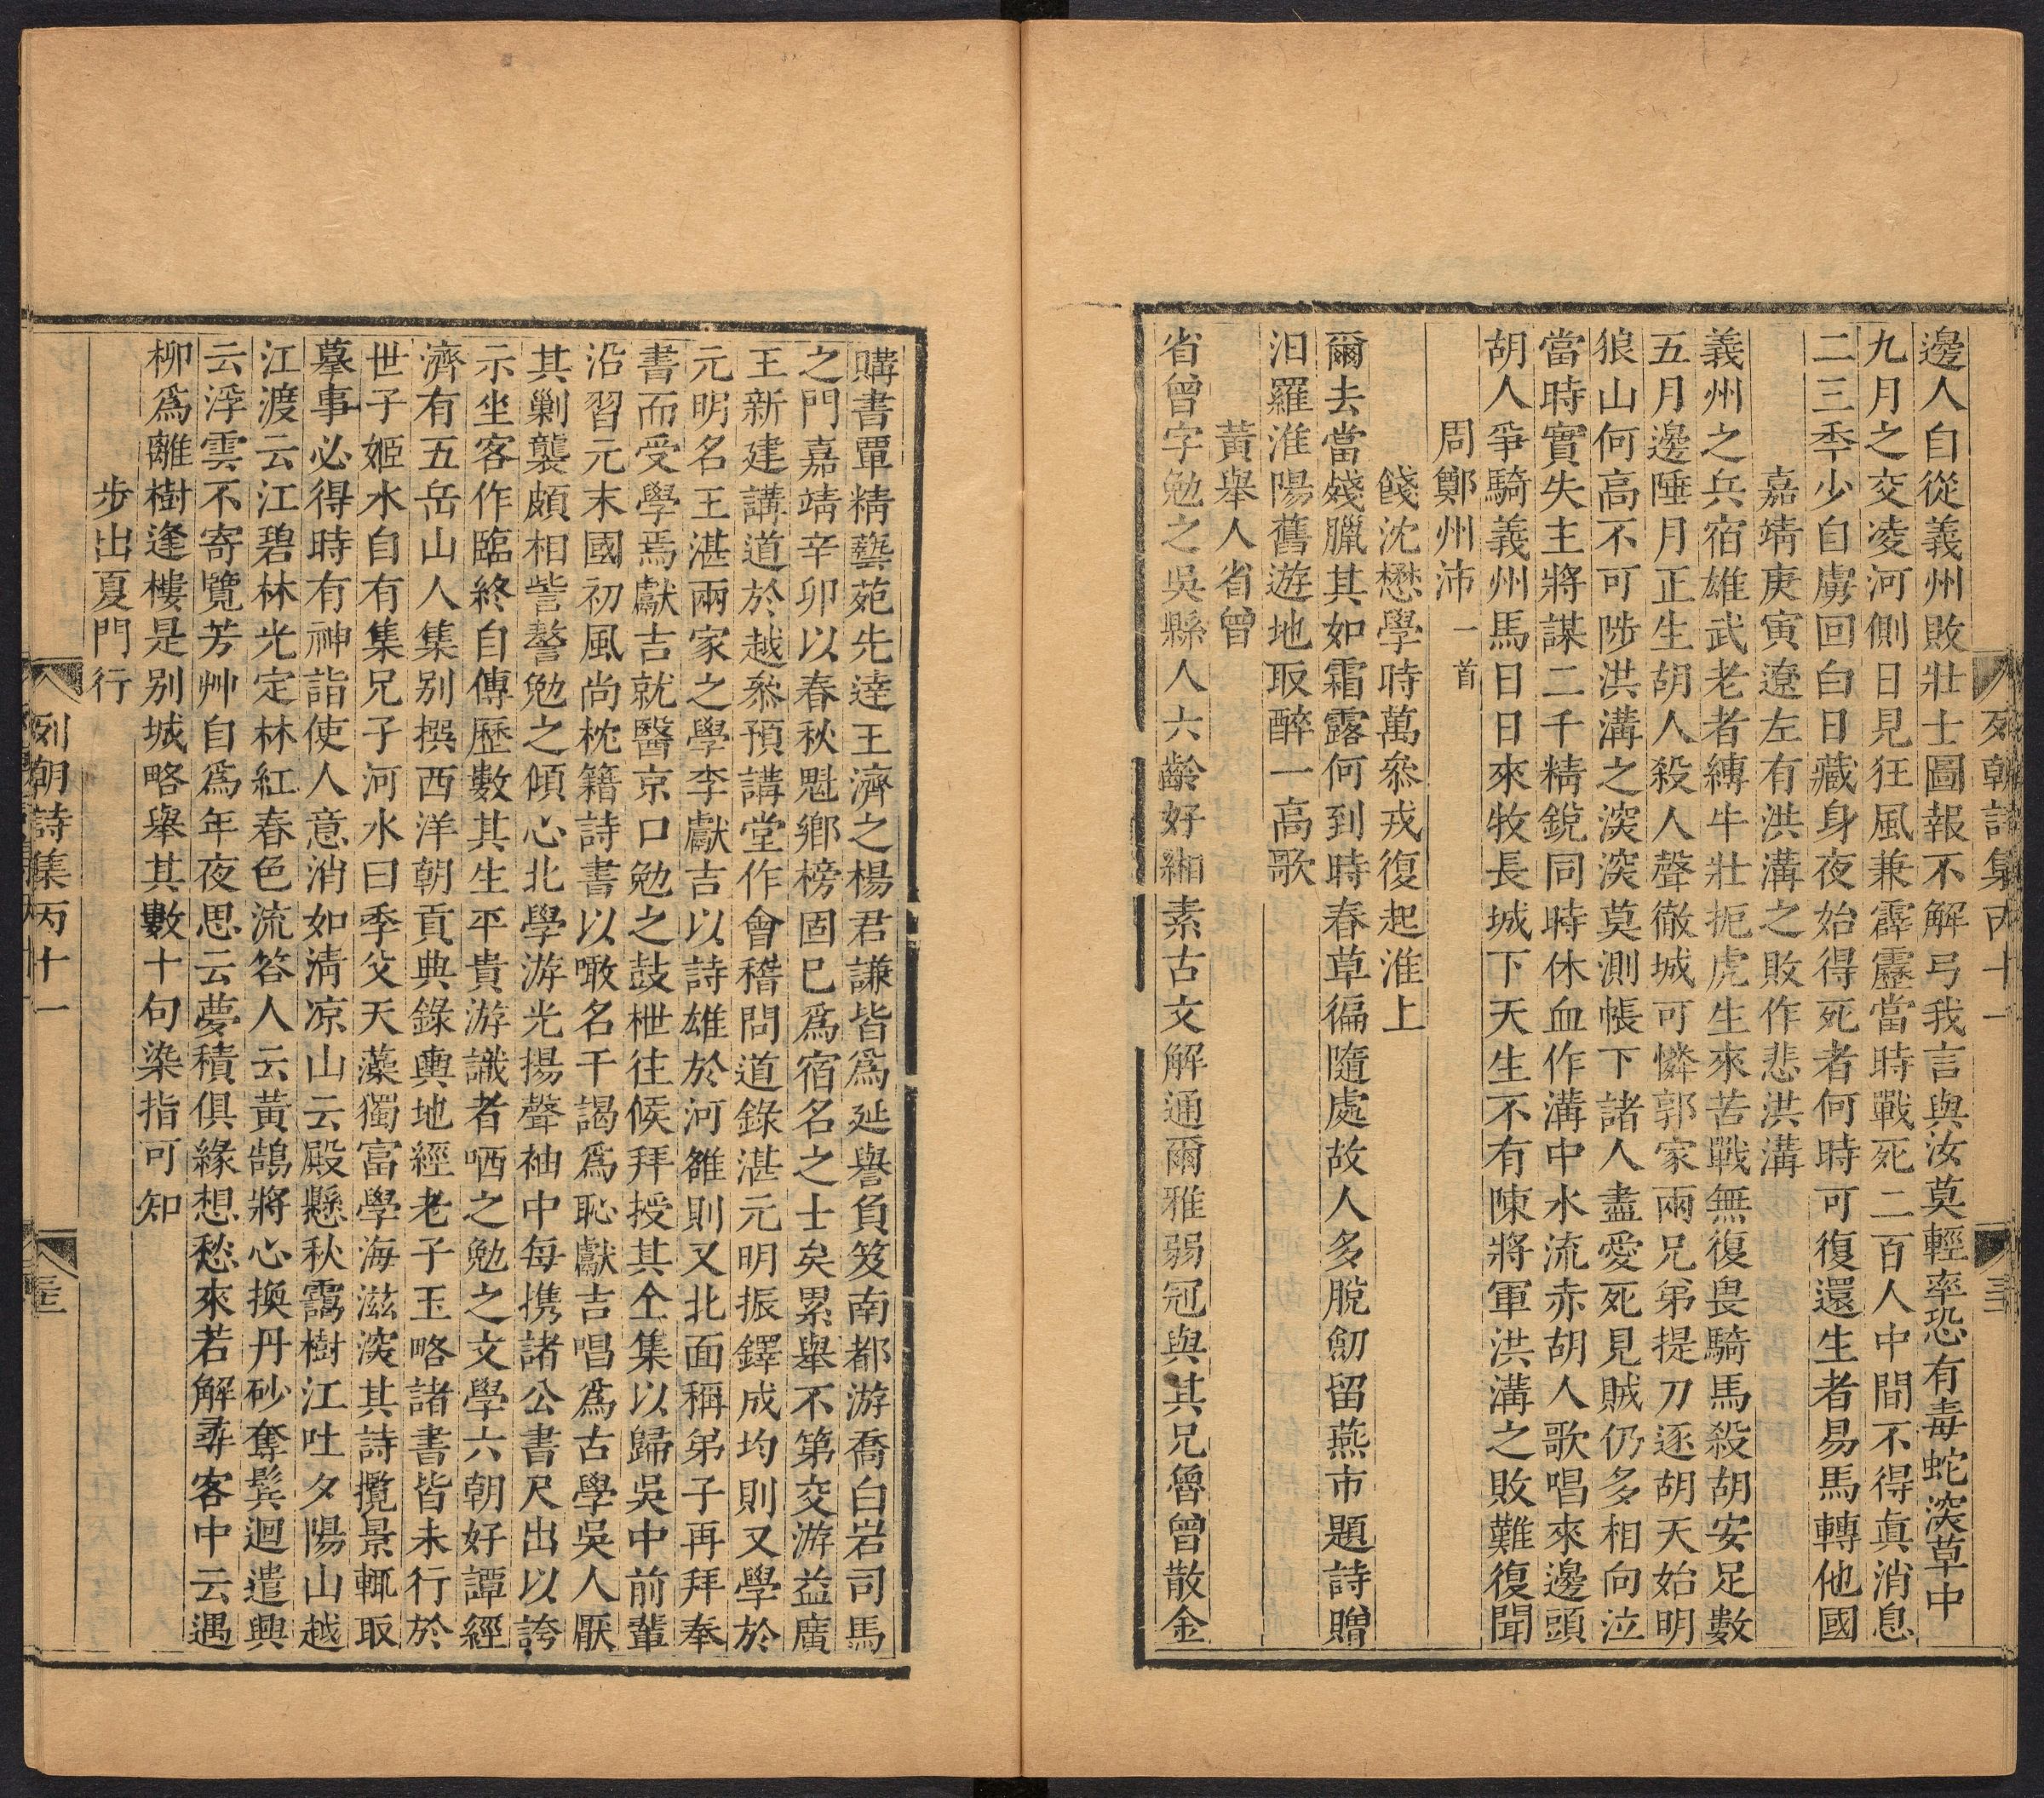 列朝詩集丙十一
邊人自從義州敗壯士圖報不解弓我言與汝莫輕率恐有毒蛇深草中
九月之交凌河側日見狂風兼霹靂當時戰死二百人中間不得眞消息
二三季少自虜回白日藏身夜始得死者何時可復還生者易馬轉他國
嘉靖庚寅遼左有洪溝之敗作悲洪溝
義州之兵宿雄武老者縛牛壯扼虎生來苦戰無復畏騎馬殺胡安足數
五月邊陲月正生胡人殺人聲徹城可憐郭家兩兄弟提刀逐胡天始明
狼山何高不可陟洪溝之深深莫測帳下諸人盡愛死見賊仍多相向泣
當時實失主將謀二千精銳同時休血作溝中水流赤胡人歌唱來邊頭
胡人爭騎義州馬日日來牧長城下天生不有陳將軍洪溝之敗難復聞
周鄭州沛一首
餞沈懋學時萬叅戎復起淮上
爾去當殘臘其如霜露何到時春草徧隨處故人多脫劒留燕市題詩贈
汨羅淮陽舊遊地取醉一高歌
黃舉人省曾
省曾字勉之吳縣人六齡好緗素古文解通爾雅弱冠與其兄魯曾散金
購書覃精藝苑先達王濟之楊君謙皆爲延譽負笈南都游喬白岩司馬
之門嘉靖辛卯以春秋魁鄉榜固已爲宿名之士矣累舉不第交游益廣
王新建講道於越叅預講堂作會稽問道錄湛元明振鐸成均則又學於
元明名王湛兩家之學李獻吉以詩雄於河雒則又北面稱弟子再拜奉
書而受學焉獻吉就醫京口勉之鼓枻往候拜授其仝集以歸吳中前輩
沿習元末國初風尚枕籍詩書以噉名干謁爲恥獻吉唱爲古學吳人厭
其剿襲頗相訾謷勉之傾心北學游光揚聲袖中每携諸公書尺出以誇
示坐客作臨終自傳歷數其生平貴游識者哂之勉之文學六朝好譚經
濟有五岳山人集别撰西洋朝貢典錄輿地經老子玉略諸書皆未行於
世子姬水自有集兄子河水曰季父天藻獨富學海滋深其詩攬景輒取
摹事必得時有神詣使人意消如淸凉山云殿懸秋靄樹江吐夕陽山越
江渡云江碧林光定林紅春色流答人云黃鵠將心換丹砂奪鬂迴遣興
云浮雲不寄覽芳艸自爲年夜思云夢積俱緣想愁來若解尋客中云遇
柳爲離樹逢樓是别城略舉其數十句染指可知
步出夏門行
列朝詩集丙十一